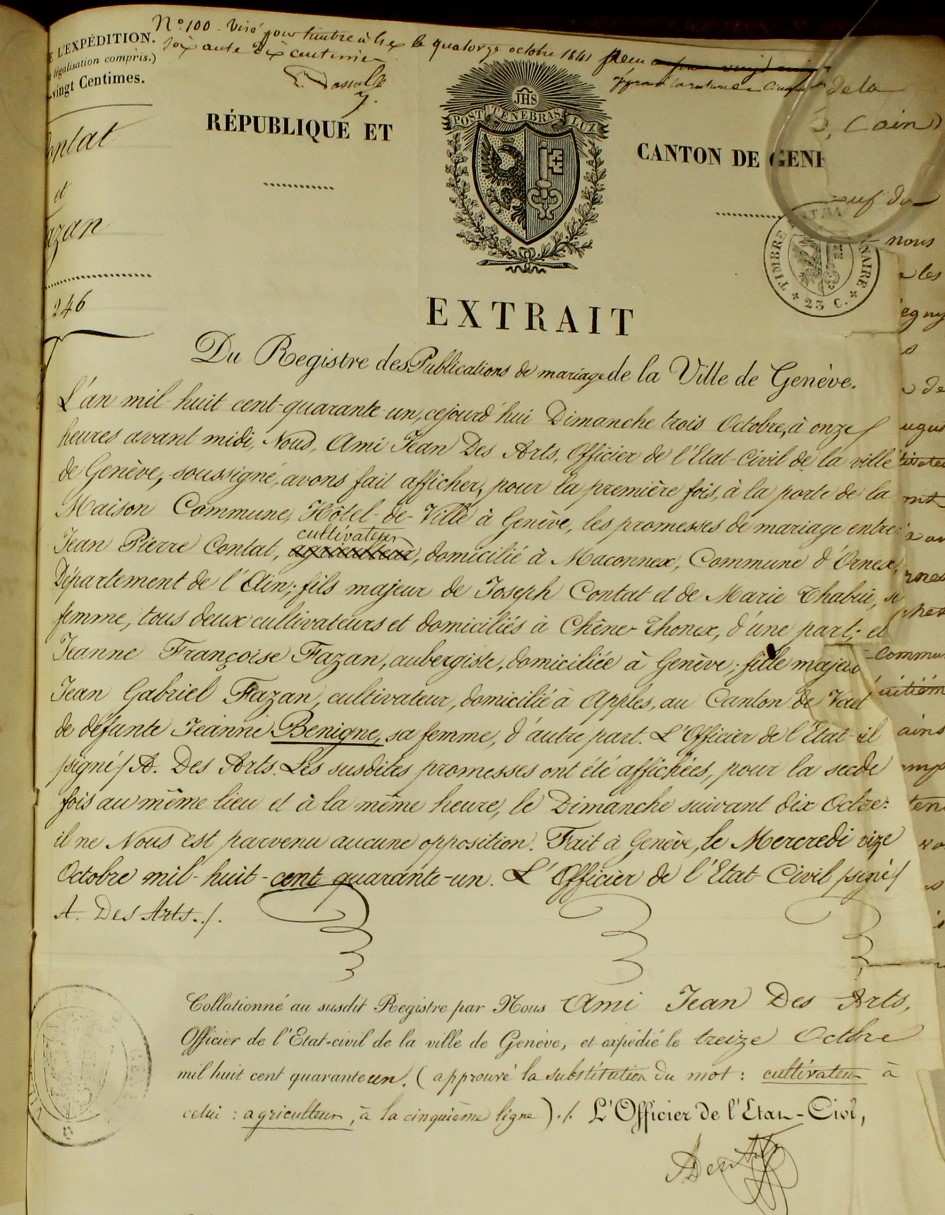 N.° 100. Visé pour timbre à Gex le quatorze octobre 1841
soixante dix centimes
E L'EXPÉDITION.
légalisation compris.)
vingt Centimes.
ontat
et
azan
246
RÉPUBLIQUE ET
CANTON DE GENÈ
JHS
POST TENEBRAS LUX
TIMBRE
NAIRE
25 C.
de la
, l'ain
euf du
nous
les
EXTRAIT
Du Registre des Publications de mariage de la Ville de Genève.
L'an mil huit cent-quarante un, cejourd'hui Dimanche trois Octobre, à onze
heures avant midi, Nous, Ami Jean Des Arts, Officier de l'Etat-Civil de la ville
de Genève, soussigné, avons fait afficher, pour la première fois, à la porte de la
Maison Commune, Hôtel-de-Ville à Genève, les promesses de mariage entre
cultivateur
Jean Pierre Contat, agriculteur, domicilié à Maconnex, Commune d'Ornex,
Département de l'Ain; fils majeur de Joseph Contat et de Marie Chabui, s
femme, tous deux cultivateurs et domiciliés à Chêne-Thonex, d'une part; et
Jeanne Françoise Fazan, aubergiste, domiciliée à Genève; fille majeu
Jean Gabriel Fazan, cultivateur, domicilié à Apples, au Canton de Vaud
de défunte Jeanne Benigne, sa femme, d'autre part. L'Officier de l'Etat-il
signé/ A. Des Arts. Les susdites promesses ont été affichées, pour la secde
fois au même lieu et à la même heure, le Dimanche suivant dix Octre:
il ne Nous est parvenu aucune opposition. Fait à Genève, le Mercredi eize
Octobre mil-huit-cent quarante-un. L'Officier de l'Etat-Civil signé/
A. Des Arts./.
Collationné au susdit Registre par Nous Ami Jean Des Arts,
Officier de l'Etat-civil de la ville de Genève, et expédié le treize Octobre
mil huit cent quarante un. (approuvé la substitution du mot: cultivateur à
celui: agriculteur, à la cinquième ligne)./. L'Officier de l'Etat-Civil,
ADesArts